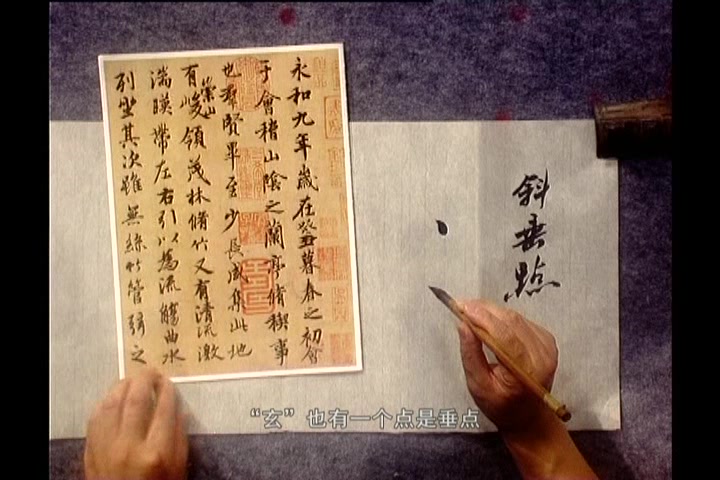 斜垂點
永和九年歲在癸丑暮春之初會
于會稽山陰之蘭亭脩稧事
也羣賢畢至少長咸集此地
有崇山峻領茂林脩竹又有清流激
湍暎帶左右引以為流觴曲水
列坐其次雖無絲竹管弦之
“玄”也有一个点是垂点